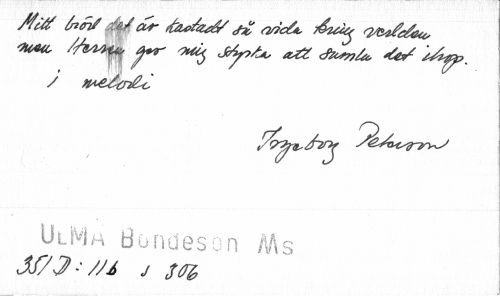 Mitt bröd det är kastadt så vida kring verlden
men Herren ger mig styrka att samla det ihop.
1 melodi
Ingeborg Peterson
ULMA Bondeson Ms
351 D: 11b s 306